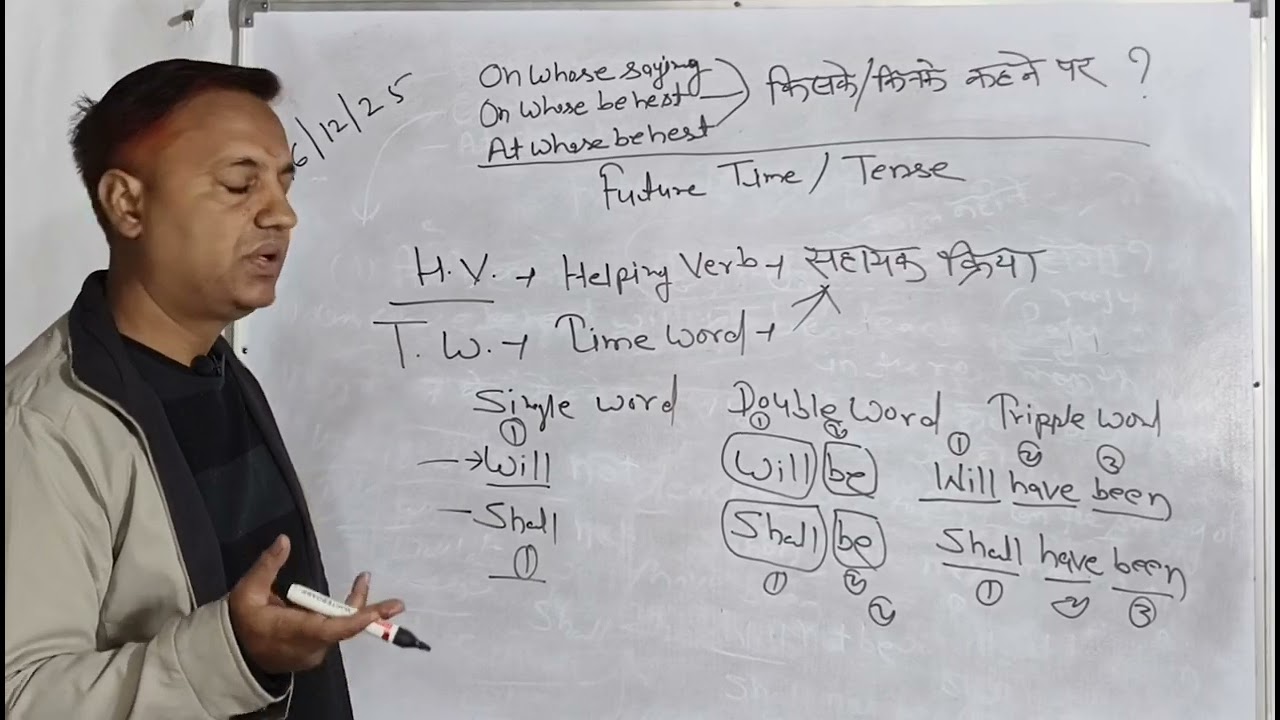 6/12/25
On whose saying
On whose behest
At whose behest
किसके/किनके कहने पर ?
Future Time / Tense
H.V. → Helping Verb → सहायक क्रिया
T.W. → Time Word →
Single word Double Word Tripple word
① ① ② ① ② ③
→ Will Will be Will have been
– Shall Shall be Shall have been
① ① ② ① ② ③
②